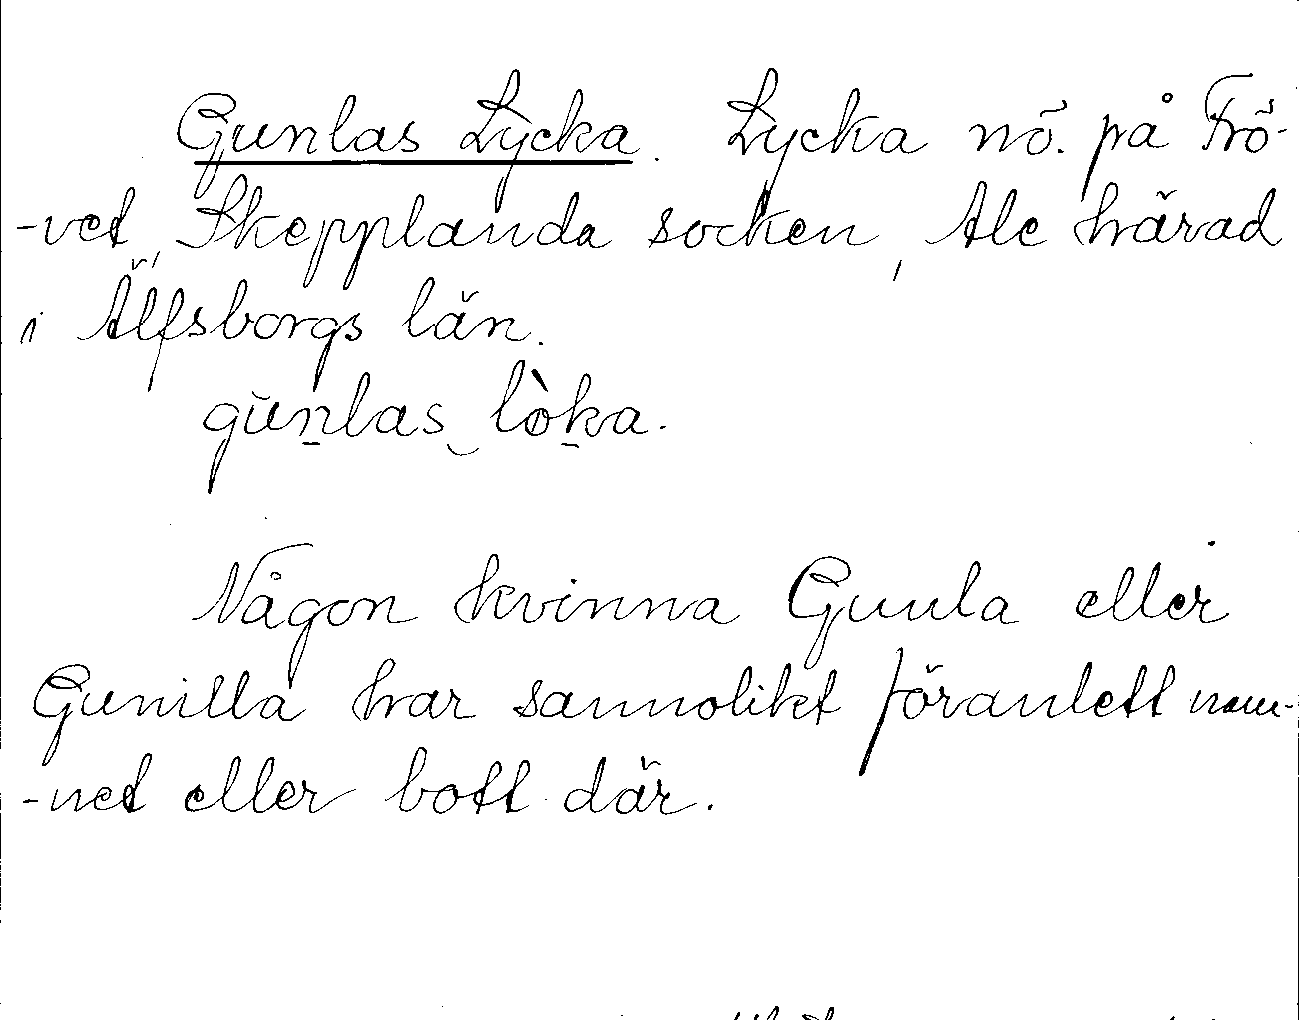 Gunlas Lycka. Lycka nö. på Frö-
-vet, Skepplanda socken, Ale härad
i Älfsborgs län.
gūn̲las‿lòk̲a.
Någon kvinna Gunla eller
Gunilla har sannolikt föranlett nam-
-net eller bott där.